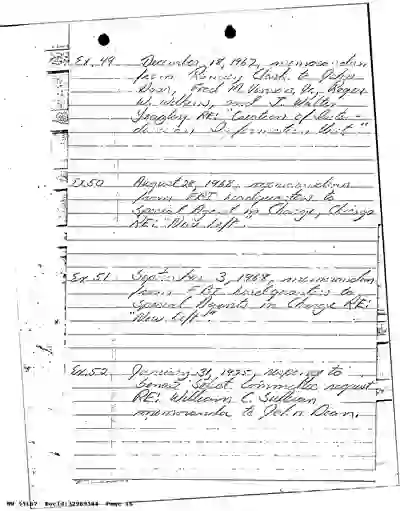 Ex. 49 December 18, 1967, memorandum
from Ramsey Clark to John
Doar, Fred M. Vinson, Jr., Roger
W. Wilkins, and J. Walter
Yeagley RE: "Creation of Inter-
division Information Unit"
Ex. 50 August 28, 1968, memorandum
from FBI headquarters to
Special Agent in Charge, Chicago
RE: "New Left"
Ex. 51 September 3, 1968, memorandum
from FBI headquarters to
Special Agents in Charge RE:
"New Left"
Ex. 52 January 31, 1975, response to
Senate Select Committee request
RE: William C. Sullivan
memoranda to John Dean.
Page 15